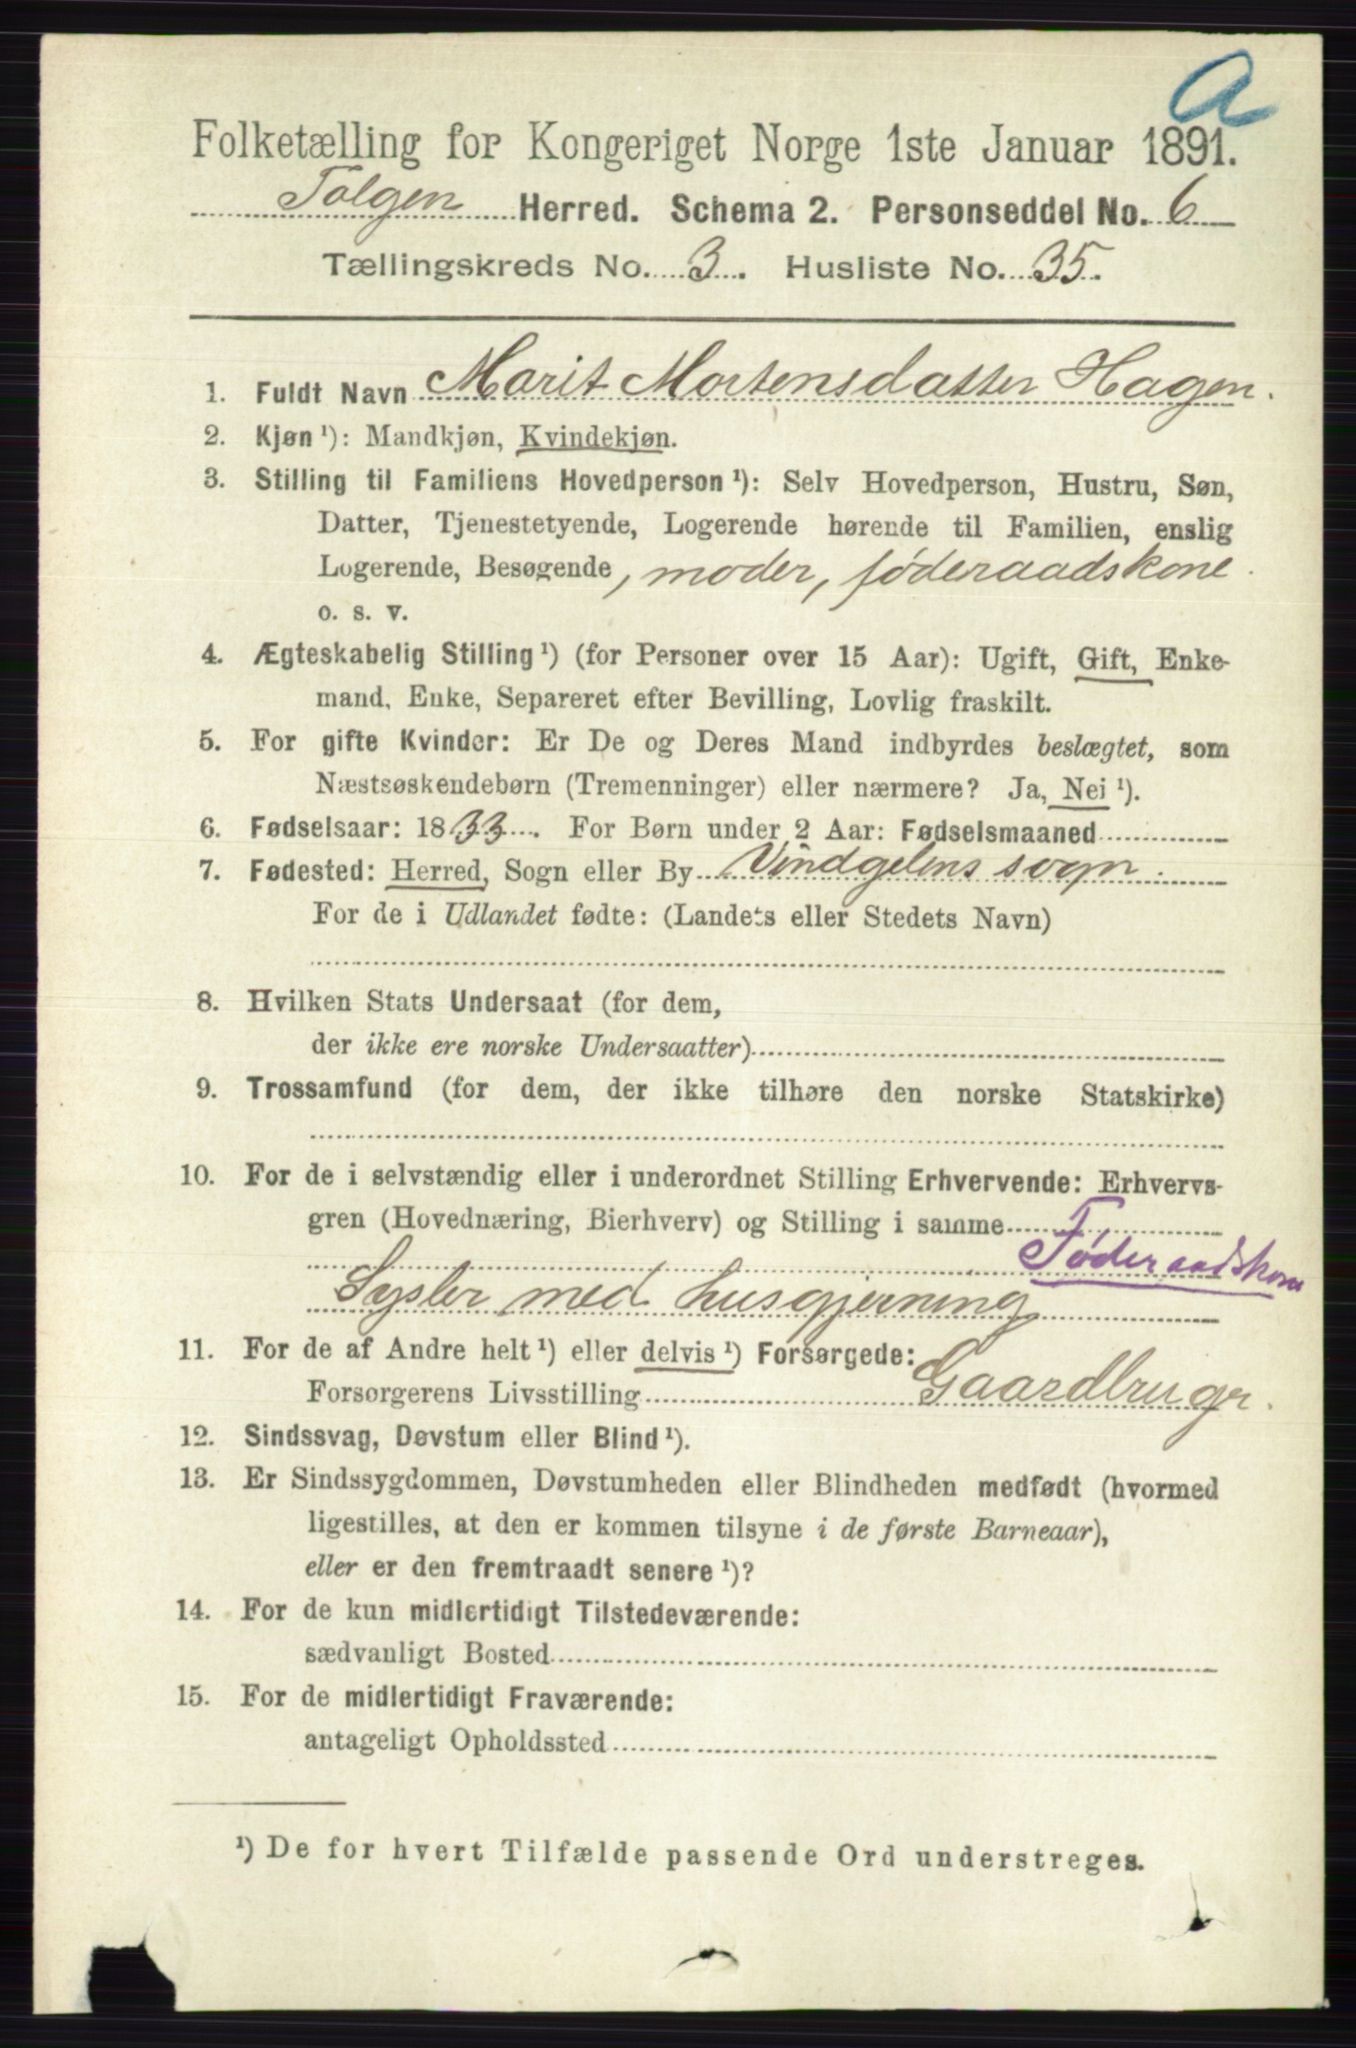 a
Folketælling for Kongeriget Norge 1ste Januar 1891.
Tolgen Herred. Schema 2. Personseddel No. 6
Tællingskreds No. 3. Husliste No. 35.
1. Fuldt Navn Marit Mortensdatter Hagen.
2. Kjøn ¹): Mandkjøn, Kvindekjøn.
3. Stilling til Familiens Hovedperson ¹): Selv Hovedperson, Hustru, Søn,
Datter, Tjenestetyende, Logerende hørende til Familien, enslig
Logerende, Besøgende, moder, føderaadskone.
o. s. v.
4. Ægteskabelig Stilling ¹) (for Personer over 15 Aar): Ugift, Gift, Enke-
mand, Enke, Separeret efter Bevilling, Lovlig fraskilt.
5. For gifte Kvinder: Er De og Deres Mand indbyrdes beslægtet, som
Næstsøskendebørn (Tremenninger) eller nærmere? Ja, Nei ¹).
6. Fødselsaar: 1833. For Børn under 2 Aar: Fødselsmaaned
7. Fødested: Herred, Sogn eller By Vindgelens sogn.
For de i Udlandet fødte: (Landets eller Stedets Navn)
8. Hvilken Stats Undersaat (for dem,
der ikke ere norske Undersaatter)
9. Trossamfund (for dem, der ikke tilhøre den norske Statskirke)
10. For de i selvstændig eller i underordnet Stilling Erhvervende: Erhvervs-
gren (Hovednæring, Bierhverv) og Stilling i samme
Føderaadskone
Sysler med husgjerning
11. For de af Andre helt ¹) eller delvis ¹) Forsørgede:
Forsørgerens Livsstilling Gaardbruger.
12. Sindssvag, Døvstum eller Blind ¹).
13. Er Sindssygdommen, Døvstumheden eller Blindheden medfødt (hvormed
ligestilles, at den er kommen tilsyne i de første Barneaar),
eller er den fremtraadt senere ¹)?
14. For de kun midlertidigt Tilstedeværende:
sædvanligt Bosted
15. For de midlertidigt Fraværende:
antageligt Opholdssted
¹) De for hvert Tilfælde passende Ord understreges.